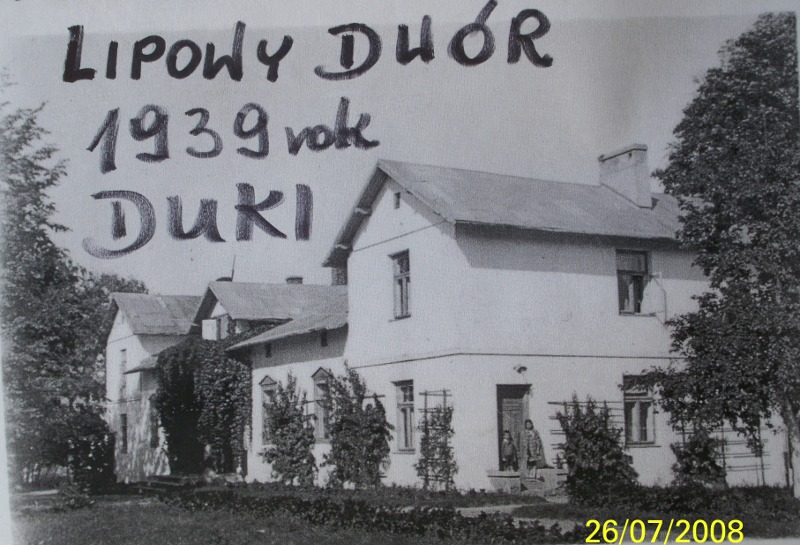 LIPOWY DWÓR
1939 rok
DUKI
26/07/2008